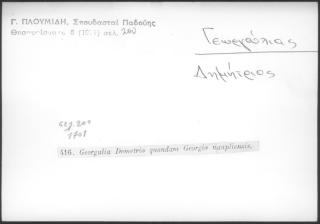 Γ. ΠΛΟΥΜΙΔΗ, Σπουδασταί Παδούης
Θησαυρίσματα 8 (1971) σελ. 200
Γεωργούλιας
Δημήτριος
σελ. 200
1701
416. Georgulia Demetrio quondam Georgio naupliensis.